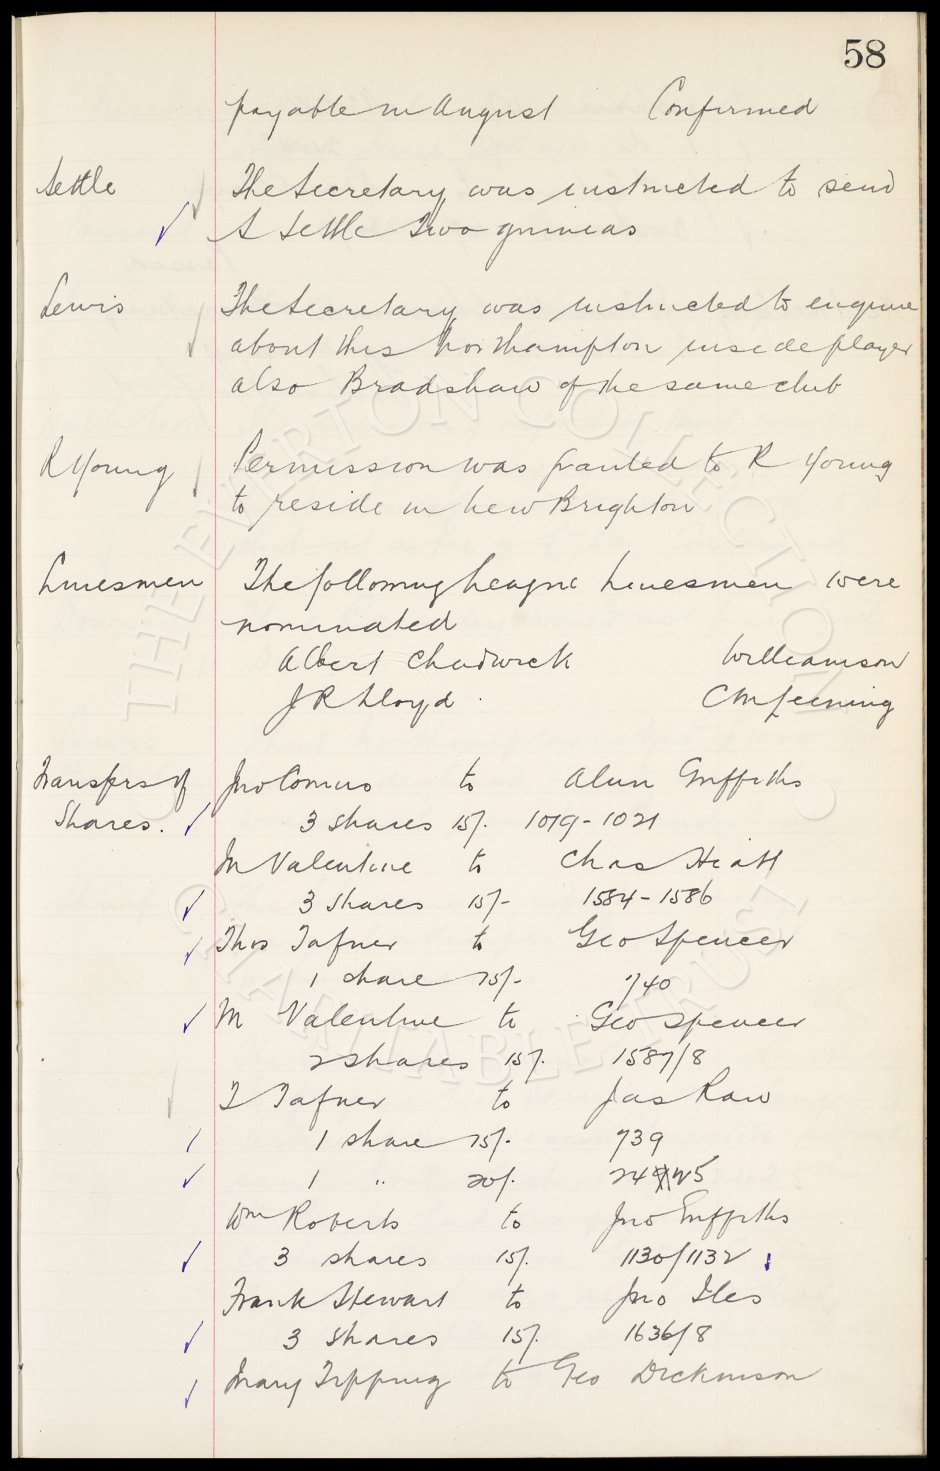 58
payable in August Confirmed
Settle The Secretary was instructed to send
A Settle Two guineas
Lewis The Secretary was instructed to enquire
about this Northampton inside player
also Bradshaw of the same club
R Young Permission was granted to R Young
to reside in New Brighton
Linesmen The following League Linesmen were
nominated
Albert Chadwick Williamson
J R Lloyd
Transfers of Jno to Griffiths
Shares. 3 shares 15/- 1019-1021
M Valentine to Chas Hiatt
3 shares 15/- 1584-1586
Thos Tafner to Geo Spencer
1 share 15/- 740
M Valentine to Geo Spencer
2 shares 15/- 1587/8
T Tafner to Jas Raw
1 share 15/- 739
1 " 20/-
Wm Roberts to Jno Griffiths
3 shares 15/- 1130/1132
Frank Stewart to Jno Iles
3 shares 15/- 1636/8
Mary Tipping to Geo Dickinson
THE EVERTON COLLECTION
CHARITABLE TRUST